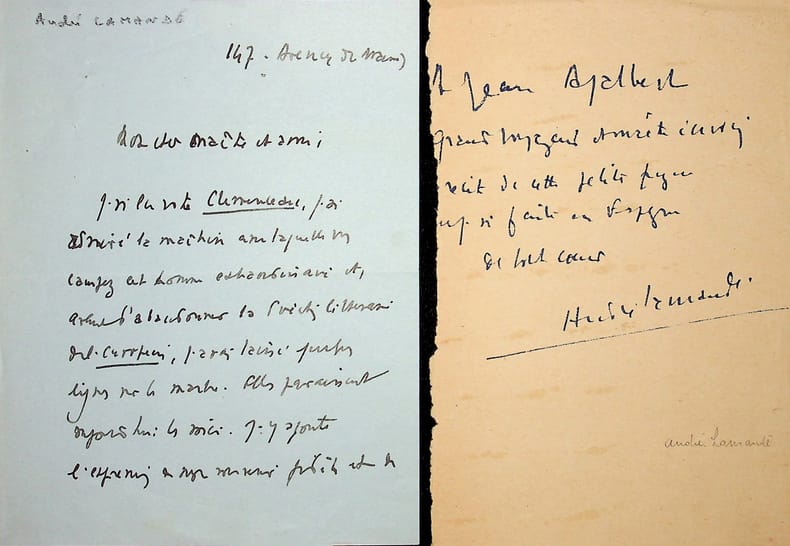 André LAMANDÉ
147. Avenue du Maine
Mon cher Maître et ami,
J'ai lu votre Clemenceau, j'ai
admiré la maîtrise avec laquelle vous
campez cet homme extraordinaire et,
avant d'abandonner la littéraire
de l'Européen, j'avais laissé quelques
lignes sur le marbre. Elles paraissent
aujourd'hui. Les voici. J'y ajoute
l'expression de mon souvenir fidèle et de
A Jean Ajalbert
grand voyageur et maître
récit de cette petite
faite en Espagne
de tout cœur
André Lamandé.
André Lamandé